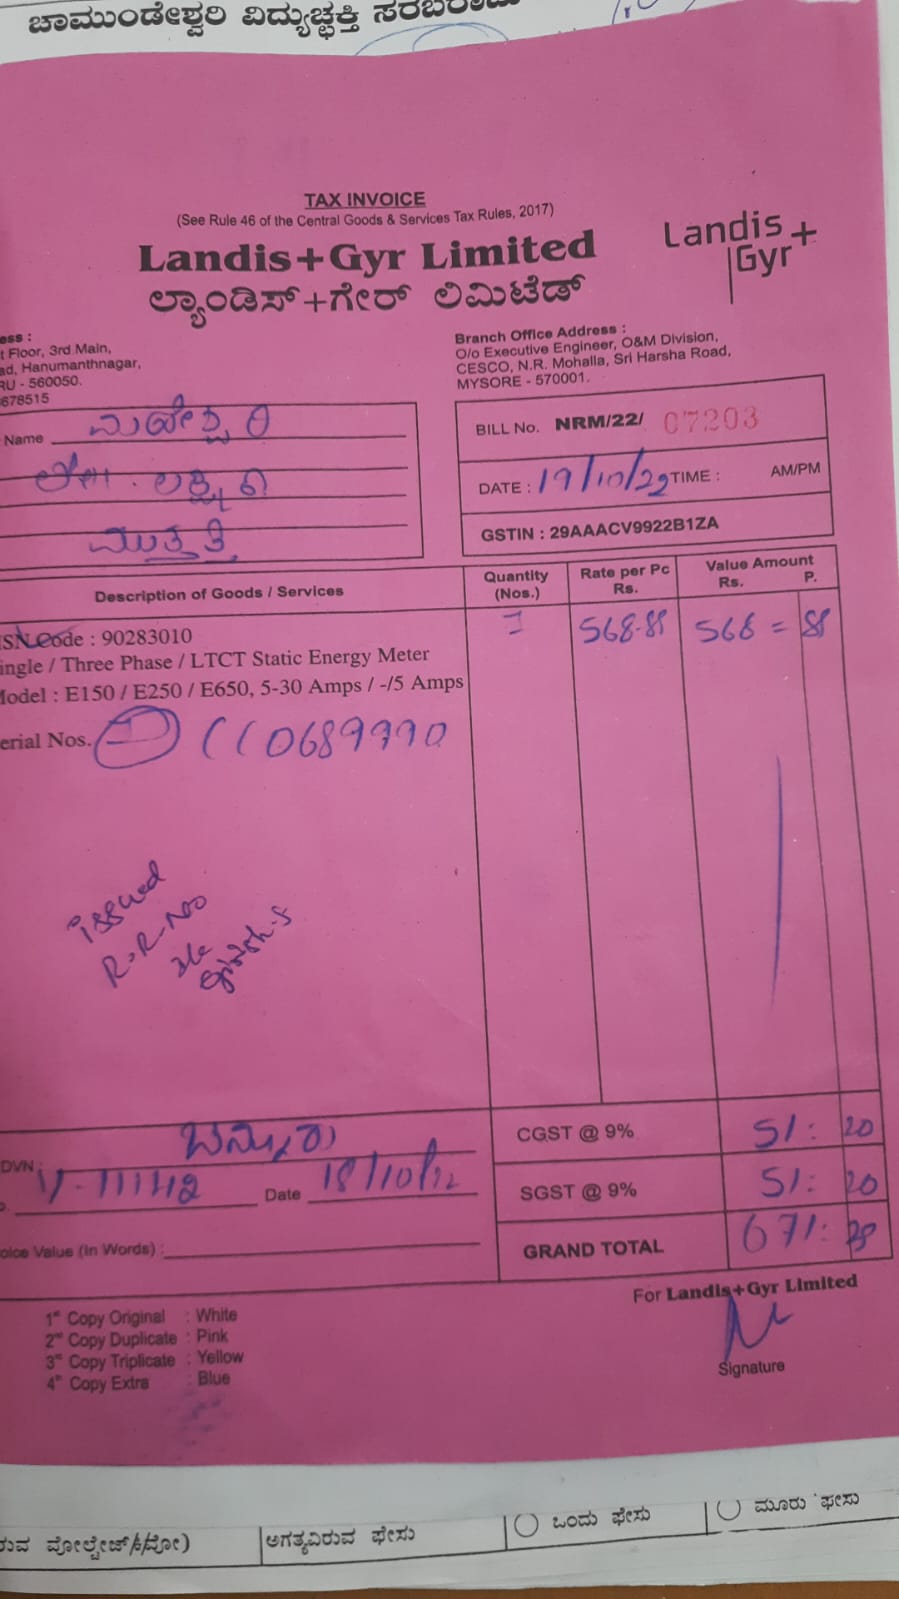 ಚಾಮುಂಡೇಶ್ವರಿ ವಿದ್ಯುಚ್ಛಕ್ತಿ
TAX INVOICE
(See Rule 46 of the Central Goods & Services Tax Rules, 2017)
Landis+Gyr Limited
Landis+
Gyr
ಲ್ಯಾಂಡಿಸ್+ಗೇರ್ ಲಿಮಿಟೆಡ್
ess :
t Floor, 3rd Main,
ad, Hanumanthnagar,
RU - 560050.
678515
Branch Office Address :
O/o Executive Engineer, O&M Division,
CESCO, N.R. Mohalla, Sri Harsha Road,
MYSORE - 570001.
Name ಮಹೇಶ್ವರಿ
ಮುತ್ತತ್ತಿ
BILL No. NRM/22/ 07203
DATE : 19/10/22 TIME : AM/PM
GSTIN : 29AAACV9922B1ZA
Description of Goods / Services
Quantity (Nos.)
Rate per Pc Rs.
Value Amount Rs. P.
SN Code : 90283010
ingle / Three Phase / LTCT Static Energy Meter
Model : E150 / E250 / E650, 5-30 Amps / -/5 Amps
1 568-88 568 = 88
erial Nos.
issued
R.R-No
DVN : ಬನ್ನೂರು
Date 18/10/22
oice Value (In Words) :
CGST @ 9% 51: 20
SGST @ 9% 51: 20
GRAND TOTAL 671:
1st Copy Original : White
2nd Copy Duplicate : Pink
3rd Copy Triplicate : Yellow
4th Copy Extra : Blue
For Landis+Gyr Limited
Signature
ಅಗತ್ಯವಿರುವ ಫೇಸು
ಒಂದು ಫೇಸು
ಮೂರು ಫೇಸು